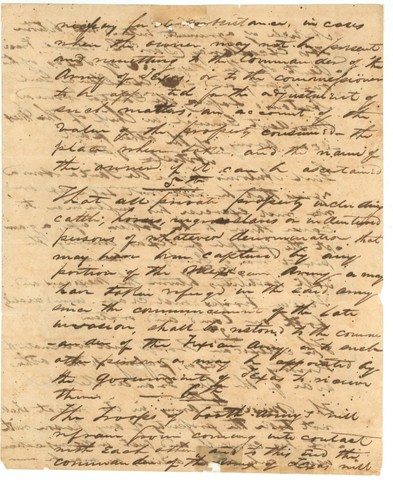 for its maintenance, in cases
when the owner may not be present
and remitting to the commander of the
Army of Texas, or to the commissioner
to be appointed for the adjustment of
such matters, an account of the
value of the property consumed - the
place where taken and the name of
the owner, if it can be ascertained
5th
That all private property including
cattle, horses, negro slaves or indentured
persons of whatever denomination that
may have been captured by any
portion of the Mexican Army or may
have taken refuge in the said army
since the commencement of the late
invasion, shall be restored to the comman
-der of the Texian Army, or to such
other persons as may be appointed by
the Government of Texas to receive
them.
6th
The troops of both Armies will
refrain from coming into contact
with each other, and to this end the
commander of the Army of Texas will